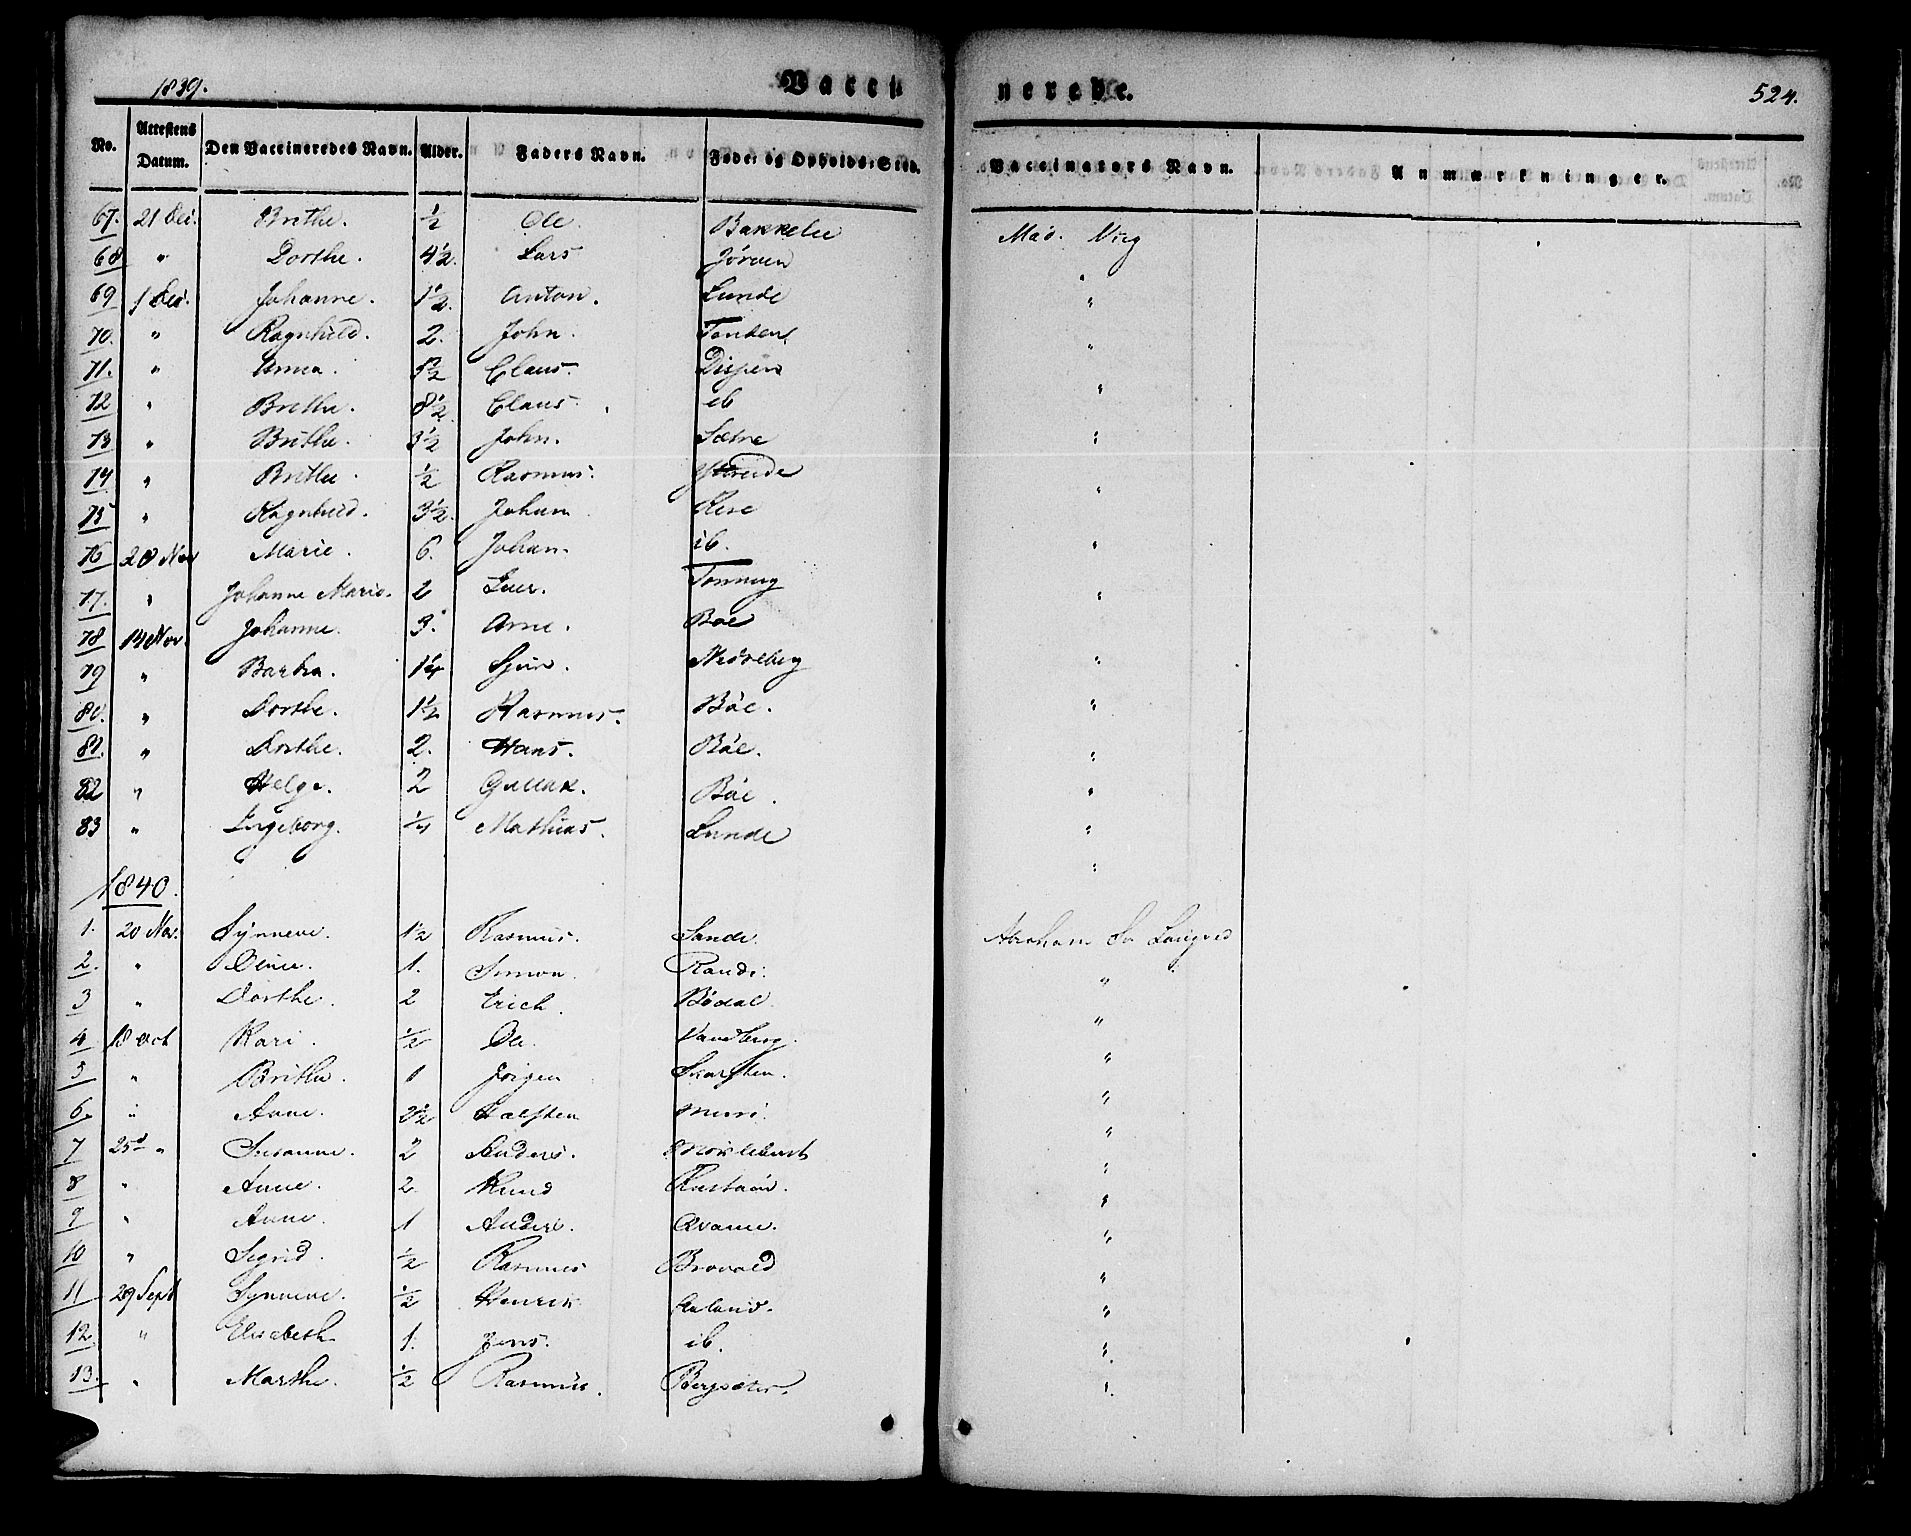 1839. Vacci nerede. 524.
No. Attestens Datum. Den Vaccineredes Navn. Alder. Faders Navn. Føde- og Opholds-Sted. Vaccinators Navn. Anmærkninger.
67. 21 Dec. Brithe. ½ Ole Bakkelie Mad. Wiig
68 " Dorthe. 4½. Lars Jørven "
69 1 Dec. Johanne. 1½. Anton. Lunde "
70. " Ragnhild. 2. John. Tonden "
71. " Anna. Claus. "
72 " Brithe. 8½ Claus. ib "
73 " Brithe. 3½ John. Sætre "
74 " Brithe. ½ Rasmus. Ytreide "
75 " Ragnhild. 3½. Johan "
76 28 Nov Marie. 6. Johan. ib. "
77. " Johanne Marie. 2 Tonning "
78 14 Nov. Johanne. 3. Arne. Boe "
79 " Barbra. 1¼ Sjur. Nedreberg "
80. " Dorthe. 1½ Rasmus. Böe. "
81. " Dorthe. 2. Hans. Böe. "
82 " Helge. 2 Gullak. Böe. "
83 " Ingeborg. ¼ Mathias. Lunde "
1840.
1. 20 Nov. Synneve. 1½ Rasmus. Sande. Abraham
2. " Oline. 1. Simon. Rande. "
3 " Dorthe. 2 Erich. Bødal "
4 18 Oct Kari. ½ Ole. Vandberg. "
5 " Brithe. 1 Jörgen Skarsten. "
6. " Anne. 2½ Halsten Muri. "
7 25d " Susanne. 2 Anders. "
8 " Anne. 2. Knud "
9 " Anne. 1 Anders. Qvame. "
10 " Sigrid. ½ Rasmus "
11 29 Sept Synneve. ½ Henrik "
12. " Elisabeth 1. Jens. ib. "
13. " Marthe. ½ Rasmus. Bergsæter. "